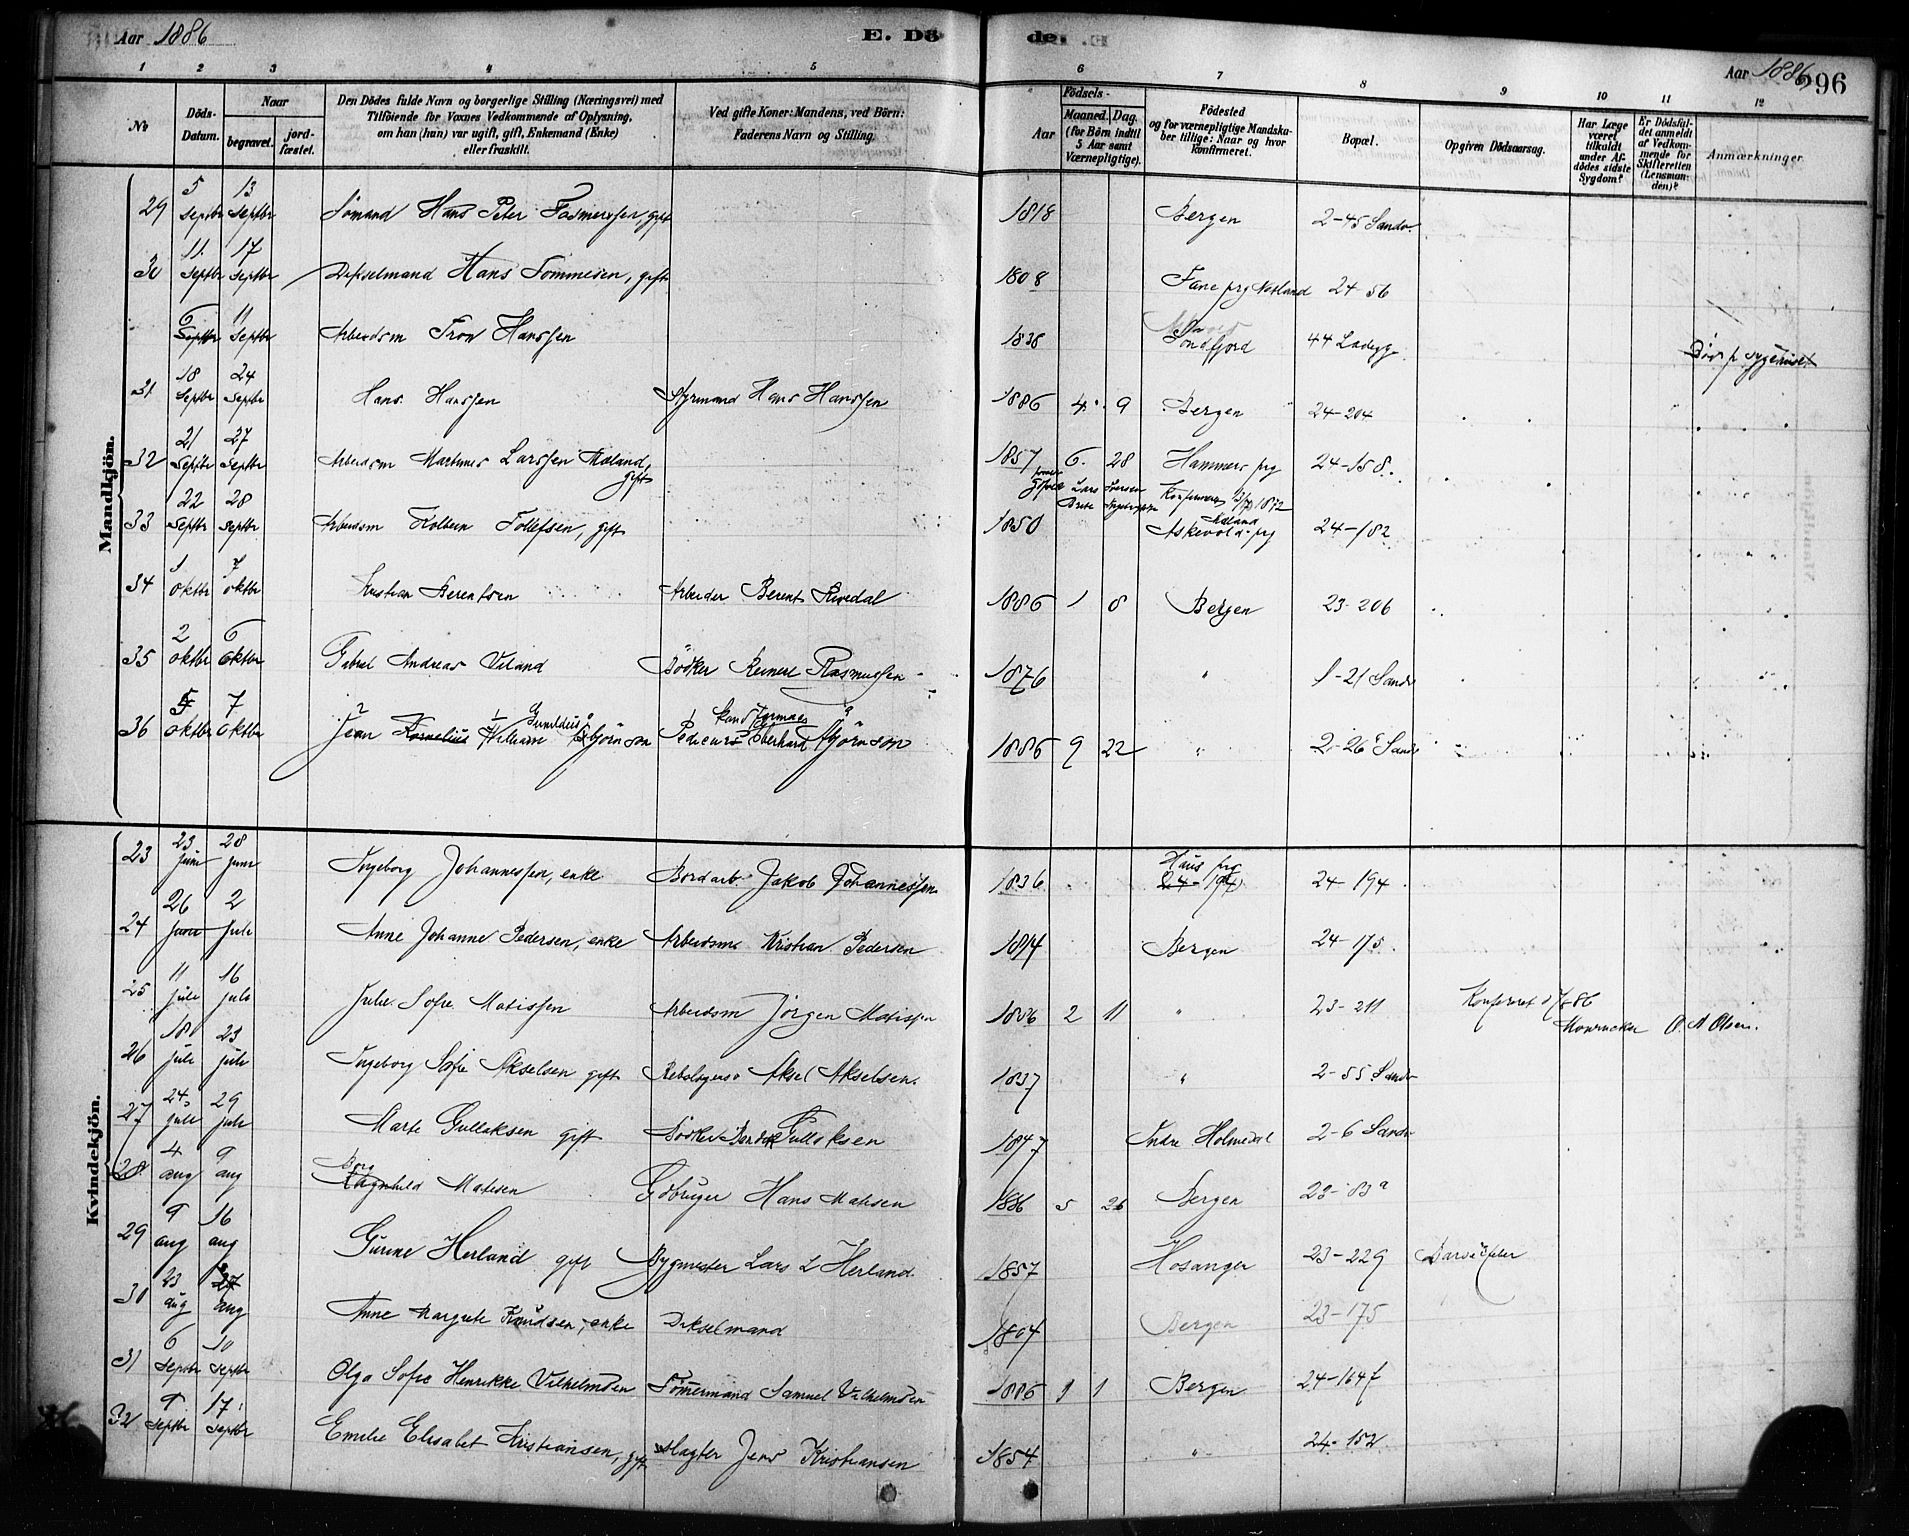 Aar 1886
E. Dö
de.
Aar 1886
96
1 2 3 4 5 6 7 8 9 10 11 12
No
Döds-Datum.
Naar
begravet.
jordfæstet.
Den Dödes fulde Navn og borgerlige Stilling (Næringsvei) med
Tilföiende for Voxnes Vedkommende af Oplysning,
om han (hun) var ugift, gift, Enkemand (Enke)
eller fraskilt.
Ved gifte Koner: Mandens, ved Börn:
Faderens Navn og Stilling.
Födsels-
Aar
Maaned. Dag.
(for Börn indtil
5 Aar samt
Værnepligtige).
Födested
og for værnepligtige Mandskaber tillige: Naar og hvor
konfirmeret.
Bopæl.
Opgiven Dödsaarsag.
Har Læge
været
tilkaldt
under Afdödes sidste
Sygdom?
Er Dödsfaldet anmeldt
af Vedkommende for
Skifteretten
(Lensmanden)?
Anmærkninger.
Mandkjön.
29 5 Septbr 13 Septbr Sømand Hans Peter gift 1818 Bergen 2-45 Sandv.
30 11 Septbr 17 Septbr Dikselmand Hans Tommesen, gift 1808 Fane prg 24-56
6 Septbr 11 Septbr Arbeidsm Hanssen 1838 Søndfjord 44 Ladegg. Død p. sygehuset
31 18 Septbr 24 Septbr Hans Hanssen Styrmand Hans Hanssen 1886 4 9 Bergen 24-204
32 21 Septbr 27 Septbr Arbeidsm Martinus Larssen gift 1857 6. 28 Hammers prg 24-158.
33 22 Septbr 28 Septbr Arbeidsm Kolbein Tollefsen, gift 1850 Askevold prg 24-182
34 1 Oktbr 7 Oktbr Kristian Berentsen Arbeider Berent Rivedal 1886 1 8 Bergen 23-206
35 2 Oktbr 6 Oktbr Gabriel Andreas Veland Bödker Reinert Rasmussen 1876 " 1-21 Sandv
36 5 Oktbr 7 Oktbr Jean Kornelius Wilhelm Bjørnson Eberhard Bjørnson 1885 9 22 " 2-26 Sandv
Kvindekjön.
23 23 Juni 28 Juni Ingeborg Johannessen, enke Bordarb. Jakob Johannessen 1836 Haus prg 24-194 24-194
24 26 Juni 2 Juli Anne Johanne Pedersen, enke Arbeidsm. Kristian Pedersen 1814 Bergen 24-175.
25 11 Juli 16 Juli Julie Sofie Matissen Arbeidsm Jörgen Matissen 1886 2 11 " 23-211
O. A. Olsen.
26 18 Juli 23 Juli Ingeborg Sofie Akselsen gift Rebslager Aksel Akselsen. 1837 " 2-55 Sandv
27 24 Juli 29 Juli Marte Gullaksen gift Gullaksen 1847 Indre Holmedal 2-6 Sandv
28 4 aug 9 aug Borg Ragnhild Matisen Hans Matisen 1886 5 26 Bergen 23-83a
29 9 aug 16 aug Gurine Herland gift Bygmester Lars L Herland. 1857 Hosanger 23-229 Barselfeber
30 23 aug 27 aug Anne Margrete Knudsen, enke Dikselmand 1804 Bergen 23-175
31 6 Septbr 10 Septbr Olga Sofie Henrikke Vilhelmsen Tömermand Samuel Vilhelmsen 1885 1 Bergen 24-164f
32 9 Septbr 17 Septbr Emilie Elisabet Kristiansen, gift Slagter Jens Kristiansen 1854 " 24-152